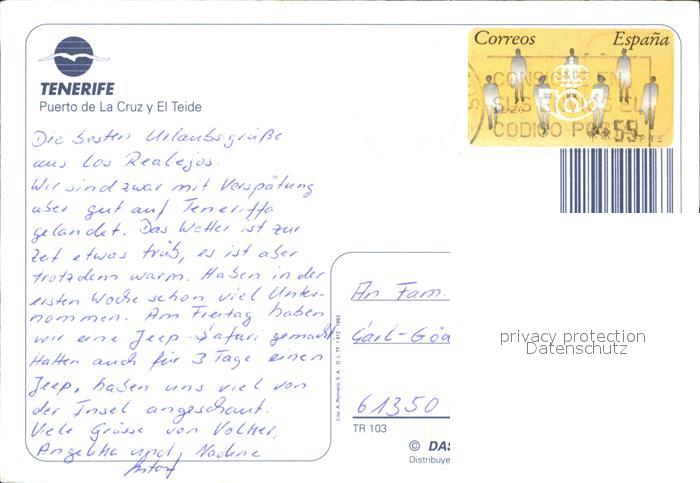 TENERIFE
Puerto de La Cruz y El Teide
Correos España
CONSIGNEN
SUS ENVIOS EL
CODIGO POSTAL
55
PTS
Die besten Urlaubsgrüße
aus Los Realejos.
Wir sind zwar mit Verspätung
aber gut auf Teneriffa
gelandet. Das Wetter ist zur
Zeit etwas trüb, es ist aber
trotzdem warm. Haben in der
ersten Woche schon viel Unter-
nommen. Am Freitag haben
wir eine Jeep-Safari gemacht.
Hatten auch für 3 Tage einen
Jeep, haben uns viel von
der Insel angeschaut.
Viele Grüsse von Volker,
Angelika und Nadine
An Fam.
Carl-Göa
61350
privacy protection
Datenschutz
TR 103
© DAS
Distribuye
Lito A. Romero, S. A. D. L. TF. 1812 1993